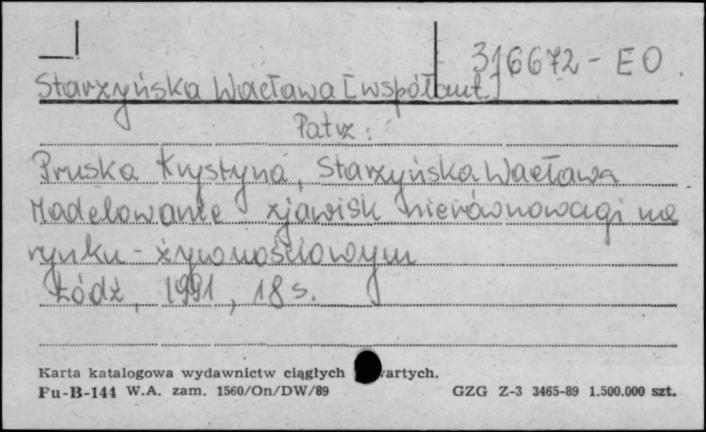 316672-EO
Starzyńska Wacława [współaut.]
Patrz:
Pruska Krystyna, Starzyńska Wacława
Modelowanie zjawisk nierównowagi na
rynku żywnościowym
Łódź, 1991, 18 s.
Karta katalogowa wydawnictw ciągłych wartych.
Fu-B-144 W.A. zam. 1560/On/DW/89 GZG Z-3 3465-89 1.500.000 szt.